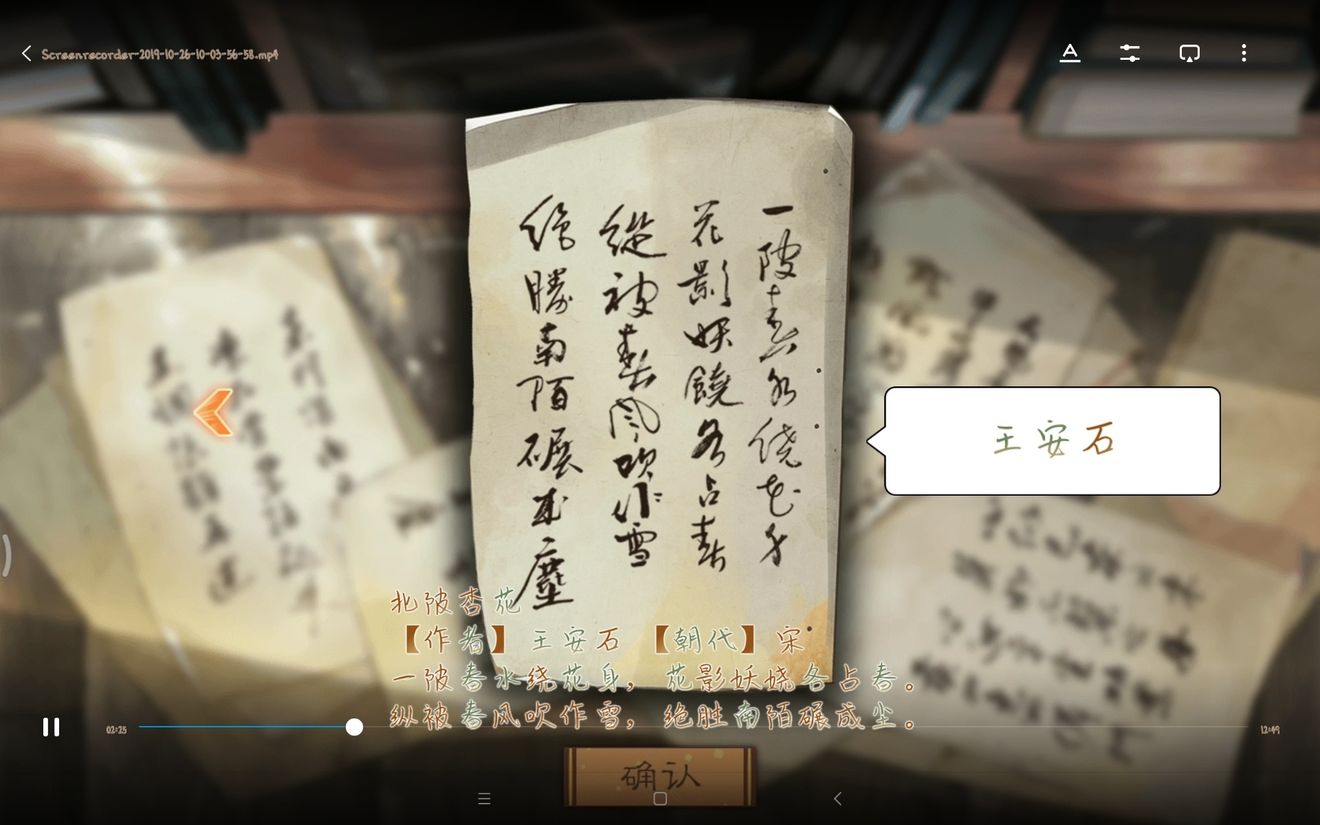 Screenrecorder-2019-10-26-10-03-56-58.mp4
一陂春水绕花身
花影妖饒各占春
縱被春風吹作雪
绝勝南陌碾成塵
王安石
北陂杏花
【作者】 王安石 【朝代】 宋
一陂春水绕花身，花影妖娆各占春。
纵被春风吹作雪，绝胜南陌碾成尘。
02:25
12:49
确认